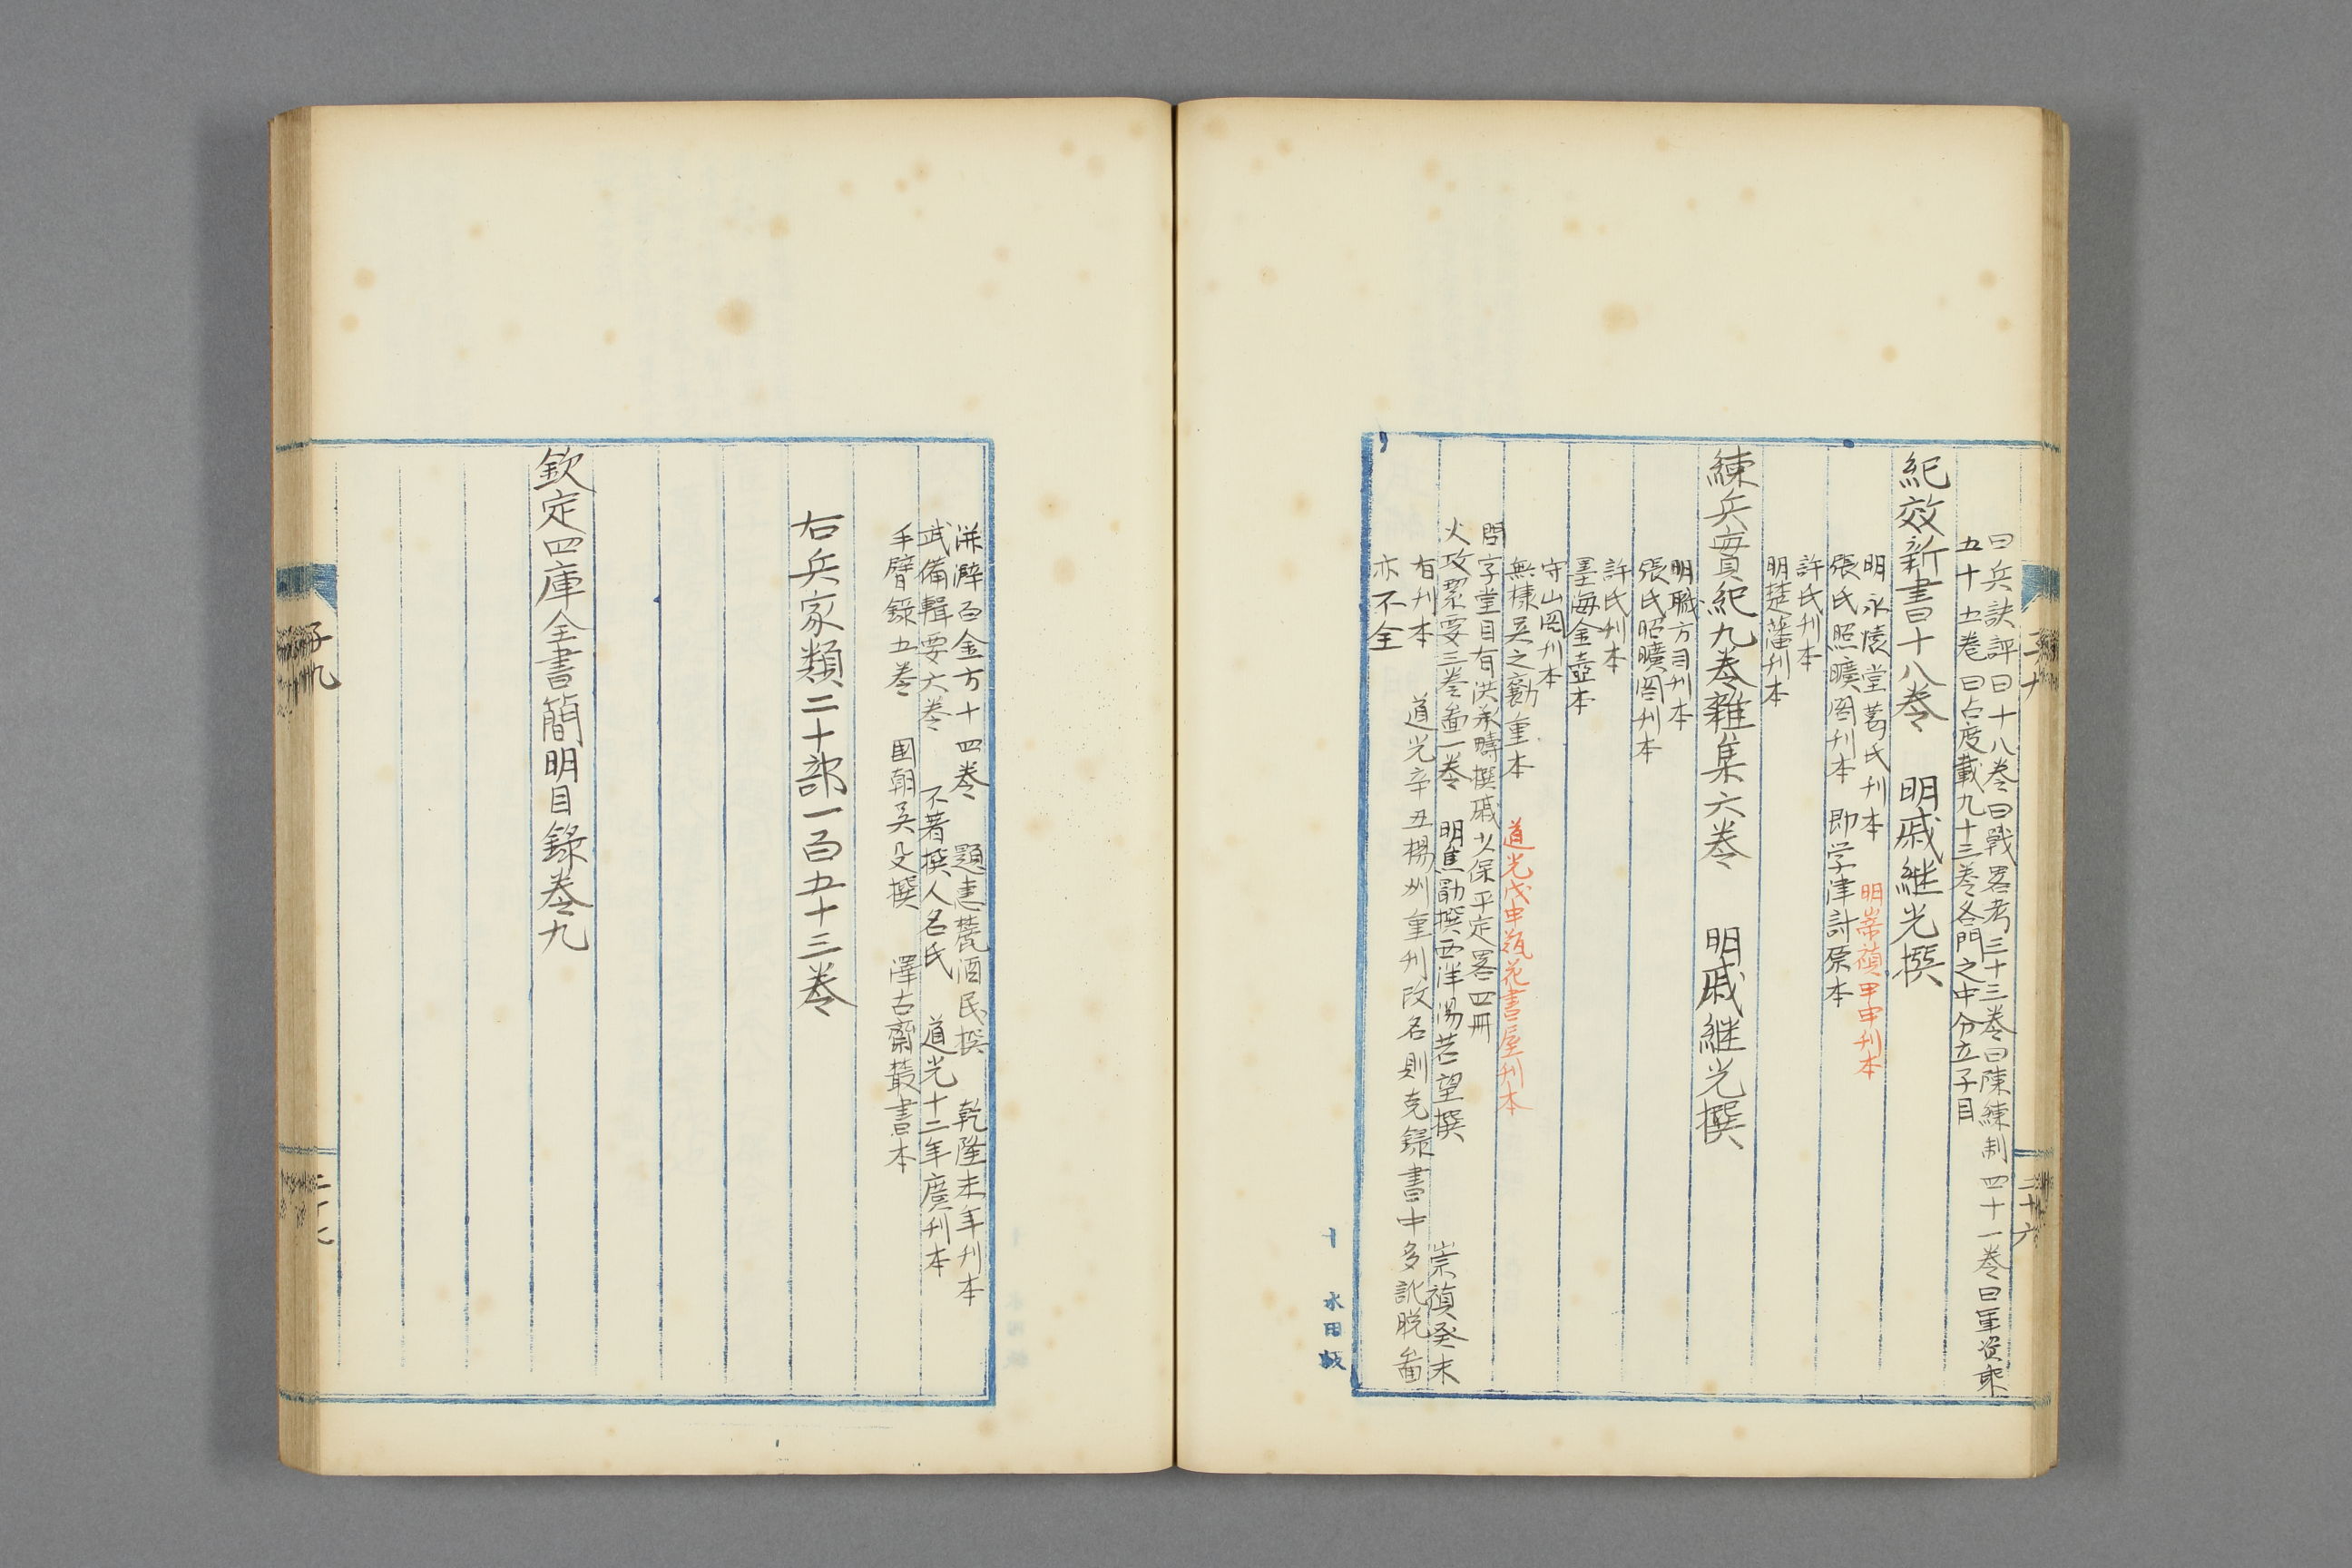 曰兵訣評曰十八卷曰戰畧考三十三卷曰陳練制四十一卷曰軍資乘
五十五卷曰占度載九十三卷各門之中分立子目
紀效新書十八卷　明戚継光撰
明永懐堂葛氏刋本　明崇禎甲申刋本
張氏照曠閣刋本　即学津討原本
許氏刋本
明楚藩刋本
練兵實紀九卷雜集六卷　明戚継光撰
明職方司刋本
張氏昭曠閣刋本
許氏刋本
墨海金壺本
守山閣刋本
無棣吳之勷重本　道光戊申瓶花書屋刋本
問字堂目有洪承疇撰戚少保平定畧四冊
火攻絜要三卷畵一卷　明焦勗撰西洋湯若望撰　崇禎癸未
有刋本　道光辛丑楊州重刋改名則克錄書中多訛脱畵
亦不全
二十六
十　水田版
洴澼百金方十四卷　題恵麓酒民撰　乾隆末年刋本
武備輯要六卷　不著撰人名氏　道光十二年廣刋本
手臂錄五卷　國朝吴殳撰　澤古齋叢書本
右兵家類二十部一百五十三卷
欽定四庫全書簡明目錄卷九
子九
二十七